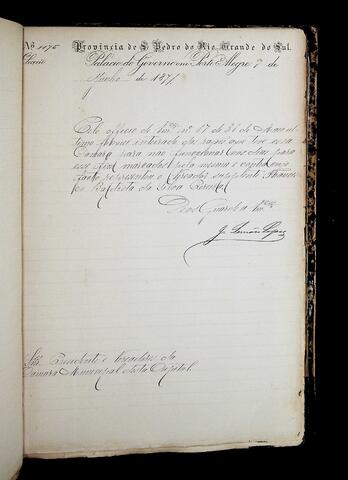 Nº 1176
Provincia de S. Pedro do Rio Grande do Sul.
Palacio do Governo em Porto Alegre 7 de
Junho de 1871
Pelo officio de Vmces nº 67 de 26 de
ultimo fiquei inteirado das rasões que teve essa
Camara para não funccionar nos dias para
esse fim marcados pela mesma e
representou o Vereador supplente Francis
co Baptista da Silva
Deos Guarde a Vmces
J. Simões Lopes
Srs. Presidente e Vereadores da
Camara Municipal desta Capital.